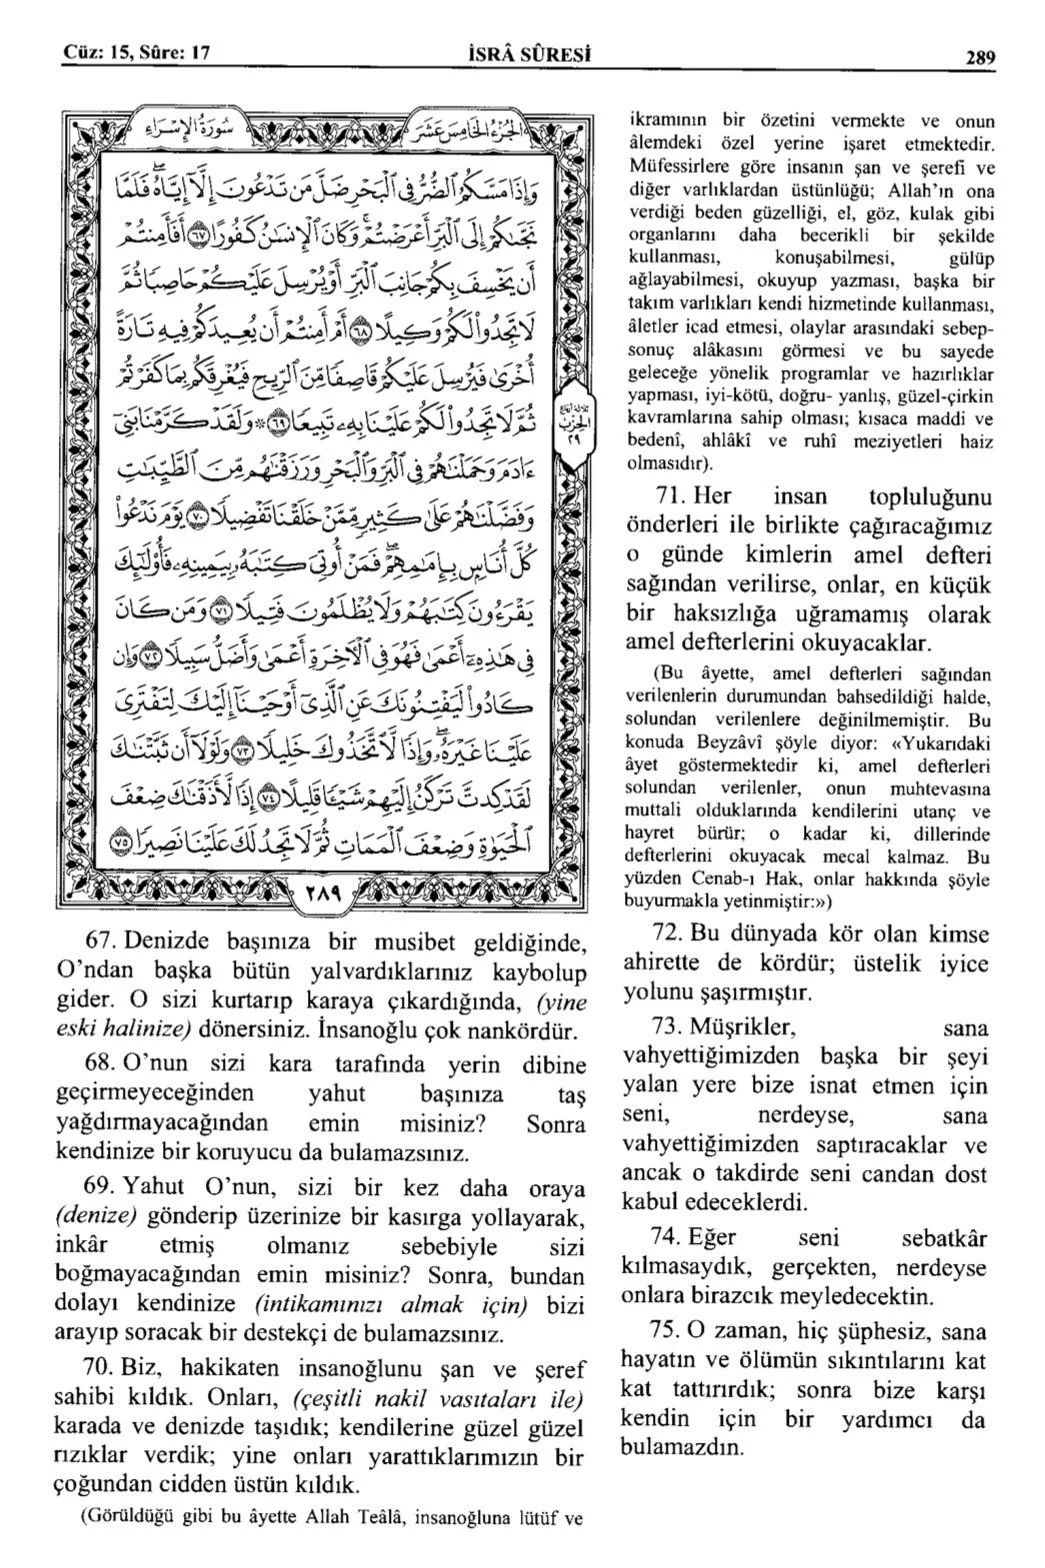 Cüz: 15, Sûre: 17
İSRÂ SÛRESİ
289
الجزء الخامس عشر
سورة الإسراء
وَإِذَا مَسَّكُمُ ٱلضُّرُّ فِي ٱلْبَحْرِ ضَلَّ مَن تَدْعُونَ إِلَّآ إِيَّاهُ ۖ فَلَمَّا
نَجَّىٰكُمْ إِلَى ٱلْبَرِّ أَعْرَضْتُمْ ۚ وَكَانَ ٱلْإِنسَٰنُ كَفُورًا ٦٧ أَفَأَمِنتُمْ
أَن يَخْسِفَ بِكُمْ جَانِبَ ٱلْبَرِّ أَوْ يُرْسِلَ عَلَيْكُمْ حَاصِبًا ثُمَّ
لَا تَجِدُوا۟ لَكُمْ وَكِيلًا ٦٨ أَمْ أَمِنتُمْ أَن يُعِيدَكُمْ فِيهِ تَارَةً
أُخْرَىٰ فَيُرْسِلَ عَلَيْكُمْ قَاصِفًا مِّنَ ٱلرِّيحِ فَيُغْرِقَكُم بِمَا كَفَرْتُمْ
ثُمَّ لَا تَجِدُوا۟ لَكُمْ عَلَيْنَا بِهِۦ تَبِيعًا ٦٩ * وَلَقَدْ كَرَّمْنَا بَنِيٓ
ءَادَمَ وَحَمَلْنَٰهُمْ فِي ٱلْبَرِّ وَٱلْبَحْرِ وَرَزَقْنَٰهُم مِّنَ ٱلطَّيِّبَٰتِ
وَفَضَّلْنَٰهُمْ عَلَىٰ كَثِيرٍ مِّمَّنْ خَلَقْنَا تَفْضِيلًا ٧٠ يَوْمَ نَدْعُوا۟
كُلَّ أُنَاسٍۭ بِإِمَٰمِهِمْ ۖ فَمَنْ أُوتِيَ كِتَٰبَهُۥ بِيَمِينِهِۦ فَأُو۟لَٰٓئِكَ
يَقْرَءُونَ كِتَٰبَهُمْ وَلَا يُظْلَمُونَ فَتِيلًا ٧١ وَمَن كَانَ
فِي هَٰذِهِۦٓ أَعْمَىٰ فَهُوَ فِي ٱلْءَاخِرَةِ أَعْمَىٰ وَأَضَلُّ سَبِيلًا ٧٢ وَإِن
كَادُوا۟ لَيَفْتِنُونَكَ عَنِ ٱلَّذِيٓ أَوْحَيْنَآ إِلَيْكَ لِتَفْتَرِيَ
عَلَيْنَا غَيْرَهُۥ ۖ وَإِذًا لَّٱتَّخَذُوكَ خَلِيلًا ٧٣ وَلَوْلَآ أَن ثَبَّتْنَٰكَ
لَقَدْ كِدتَّ تَرْكَنُ إِلَيْهِمْ شَيْـًٔا قَلِيلًا ٧٤ إِذًا لَّأَذَقْنَٰكَ ضِعْفَ
ٱلْحَيَوٰةِ وَضِعْفَ ٱلْمَمَاتِ ثُمَّ لَا تَجِدُ لَكَ عَلَيْنَا نَصِيرًا ٧٥
ثلاثة أرباع
الحزب
٢٩
٢٨٩
67. Denizde başınıza bir musibet geldiğinde,
O’ndan başka bütün yalvardıklarınız kaybolup
gider. O sizi kurtarıp karaya çıkardığında, (yine
eski halinize) dönersiniz. İnsanoğlu çok nankördür.
68. O’nun sizi kara tarafında yerin dibine
geçirmeyeceğinden yahut başınıza taş
yağdırmayacağından emin misiniz? Sonra
kendinize bir koruyucu da bulamazsınız.
69. Yahut O’nun, sizi bir kez daha oraya
(denize) gönderip üzerinize bir kasırga yollayarak,
inkâr etmiş olmanız sebebiyle sizi
boğmayacağından emin misiniz? Sonra, bundan
dolayı kendinize (intikamınızı almak için) bizi
arayıp soracak bir destekçi de bulamazsınız.
70. Biz, hakikaten insanoğlunu şan ve şeref
sahibi kıldık. Onları, (çeşitli nakil vasıtaları ile)
karada ve denizde taşıdık; kendilerine güzel güzel
rızıklar verdik; yine onları yarattıklarımızın bir
çoğundan cidden üstün kıldık.
(Görüldüğü gibi bu âyette Allah Teâlâ, insanoğluna lütüf ve
ikramının bir özetini vermekte ve onun
âlemdeki özel yerine işaret etmektedir.
Müfessirlere göre insanın şan ve şerefi ve
diğer varlıklardan üstünlüğü; Allah’ın ona
verdiği beden güzelliği, el, göz, kulak gibi
organlarını daha becerikli bir şekilde
kullanması, konuşabilmesi, gülüp
ağlayabilmesi, okuyup yazması, başka bir
takım varlıkları kendi hizmetinde kullanması,
âletler icad etmesi, olaylar arasındaki sebep-
sonuç alâkasını görmesi ve bu sayede
geleceğe yönelik programlar ve hazırlıklar
yapması, iyi-kötü, doğru- yanlış, güzel-çirkin
kavramlarına sahip olması; kısaca maddi ve
bedenî, ahlâkî ve ruhî meziyetleri haiz
olmasıdır).
71. Her insan topluluğunu
önderleri ile birlikte çağıracağımız
o günde kimlerin amel defteri
sağından verilirse, onlar, en küçük
bir haksızlığa uğramamış olarak
amel defterlerini okuyacaklar.
(Bu âyette, amel defterleri sağından
verilenlerin durumundan bahsedildiği halde,
solundan verilenlere değinilmemiştir. Bu
konuda Beyzâvî şöyle diyor: «Yukarıdaki
âyet göstermektedir ki, amel defterleri
solundan verilenler, onun muhtevasına
muttali olduklarında kendilerini utanç ve
hayret bürür; o kadar ki, dillerinde
defterlerini okuyacak mecal kalmaz. Bu
yüzden Cenab-ı Hak, onlar hakkında şöyle
buyurmakla yetinmiştir:»)
72. Bu dünyada kör olan kimse
ahirette de kördür; üstelik iyice
yolunu şaşırmıştır.
73. Müşrikler, sana
vahyettiğimizden başka bir şeyi
yalan yere bize isnat etmen için
seni, nerdeyse, sana
vahyettiğimizden saptıracaklar ve
ancak o takdirde seni candan dost
kabul edeceklerdi.
74. Eğer seni sebatkâr
kılmasaydık, gerçekten, nerdeyse
onlara birazcık meyledecektin.
75. O zaman, hiç şüphesiz, sana
hayatın ve ölümün sıkıntılarını kat
kat tattırırdık; sonra bize karşı
kendin için bir yardımcı da
bulamazdın.